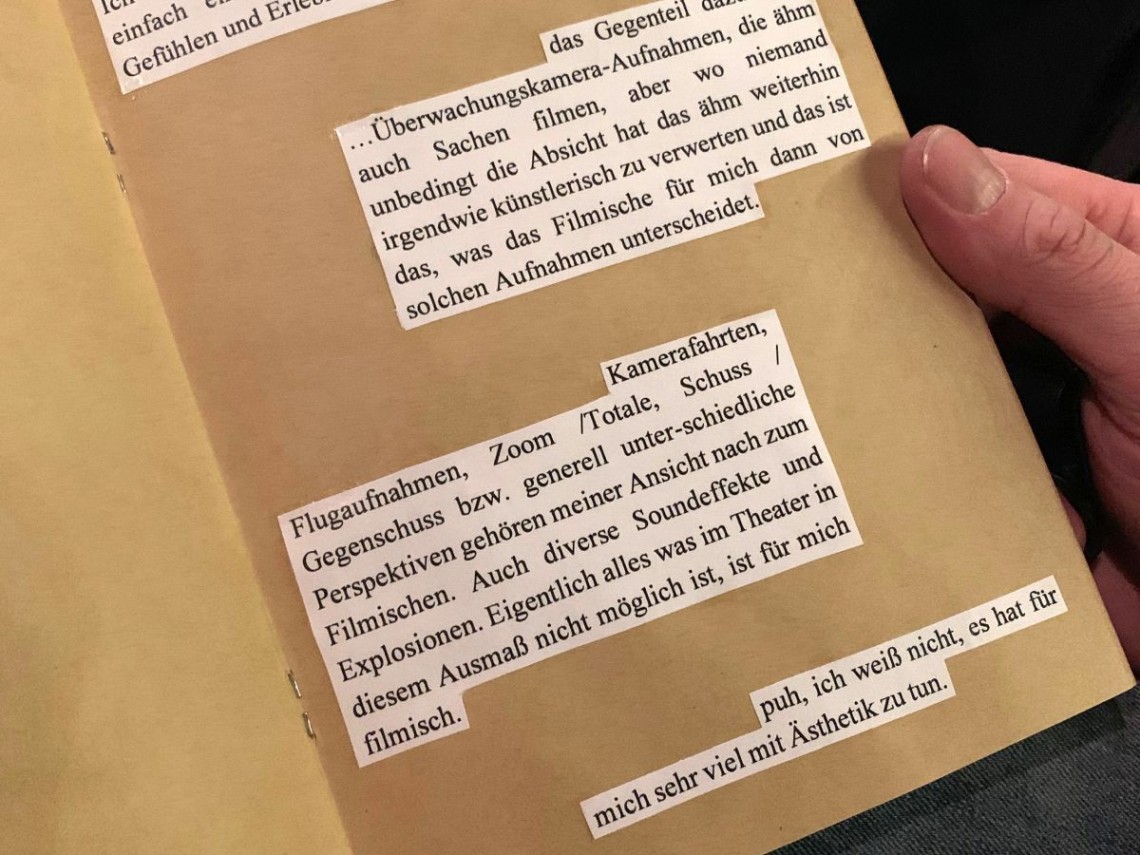 einfach
Gefühlen und
das Gegenteil
…Überwachungskamera-Aufnahmen, die ähm
auch Sachen filmen, aber wo niemand
unbedingt die Absicht hat das ähm weiterhin
irgendwie künstlerisch zu verwerten und das ist
das, was das Filmische für mich dann von
solchen Aufnahmen unterscheidet.
Kamerafahrten,
Flugaufnahmen, Zoom /Totale, Schuss /
Gegenschuss bzw. generell unter-schiedliche
Perspektiven gehören meiner Ansicht nach zum
Filmischen. Auch diverse Soundeffekte und
Explosionen. Eigentlich alles was im Theater in
diesem Ausmaß nicht möglich ist, ist für mich
filmisch.
puh, ich weiß nicht, es hat für
mich sehr viel mit Ästhetik zu tun.